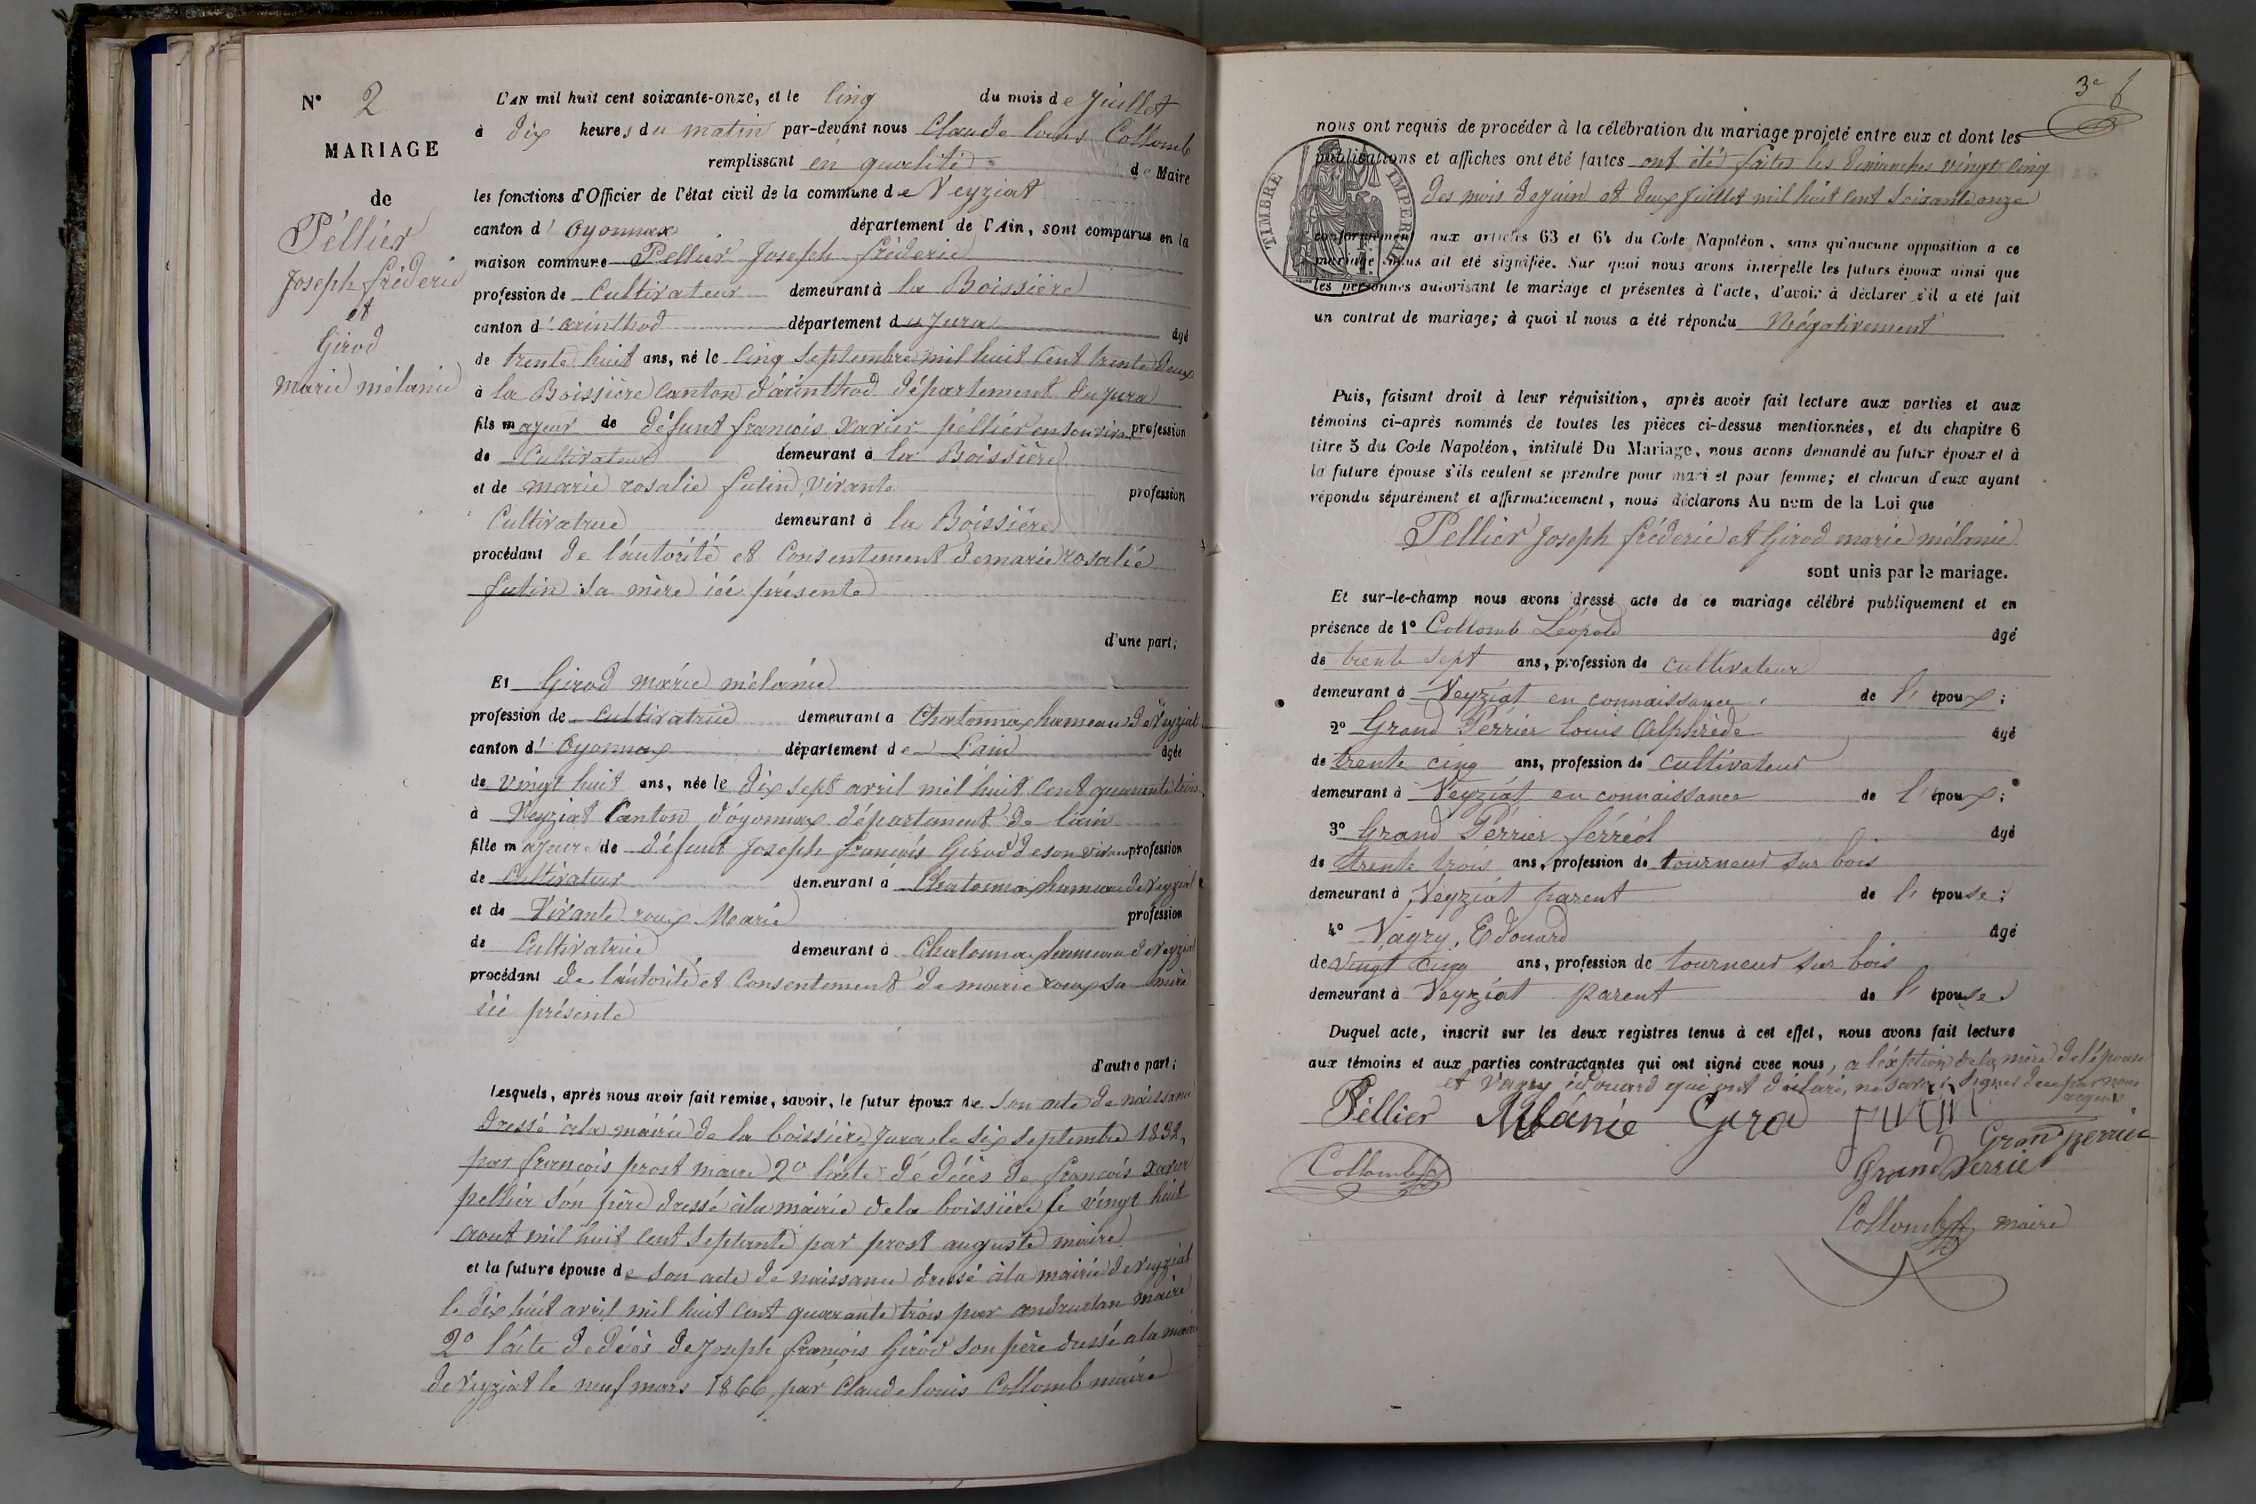 N° 2
MARIAGE
de
Péllier
Joseph fréderic
et
Girod
marie mélanie
L'AN mil huit cent soixante-onze, et le Cinq du mois de Juillet
à dix heures du matin par-devant nous Claude louis Collomb
remplissant en qualité de Maire
les fonctions d'Officier de l'état civil de la commune de Veyziat
canton d'Oyonnax département de l'Ain, sont comparus en la
maison commune Pellier Joseph fréderic
profession de Cultivateur demeurant à la Boissière
canton d'arinthod département du Jura âgé
de trente huit ans, né le Cinq septembre mil huit Cent trente deux
à la Boissière Canton d'arinthod département du jura
fils majeur de défunt françois Xavier péllier en son vivant profession
de Cultivateur demeurant à la Boissière
et de marie rosalie futin vivante profession
Cultivatrice demeurant à la Boissière
procédant de l'autorité et Consentement de marie rosalie
futin sa mère ici présente
d'une part;
Et Girod márie mélanie
profession de cultivatrice demeurant a Chatonnax hameau de Veyziat
canton d'Oyonnax département de L'ain âgée
de vingt huit ans, née le dix sept avril mil huit Cent quarante trois
à Veyziat Canton d'oyonnax département de l'ain
fille majeure de défunt Joseph françois Girod de son vivant profession
de Cultivateur demeurant a Chatonnax hameau de Veyziat
et de Vivante roux Marie profession
de Cultivatrice demeurant à Chatonnax hameau de Veyziat
procédant de l'autorité et Consentement de marie roux sa mère
ici présente
d'autre part;
Lesquels, après nous avoir fait remise, savoir, le futur époux de Son acte de naissance
dressé à la mairie de la boissière Jura le six septembre 1832,
par françois prost maire 2° l'acte de décès de françois xavier
pellier son père dressé à la mairie de la boissière le vingt huit
aout mil huit cent septante par prost auguste maire
et la future épouse de son acte de naissance dressé à la mairie de Veyziat
le dix huit avril mil huit cent quarante trois par maire
2° l'acte de décès de Joseph françois Girod son père dressé a la mairie
de Veyziat le neuf mars 1866, par Claude louis Collomb maire
3e f
nous ont requis de procéder à la célébration du mariage projeté entre eux et dont les
publications et affiches ont été faites ont été faites les dimanches vingt cinq
des mois de juin et deux Juillet mil huit Cent Soixante onze
TIMBRE IMPERIAL
conformément aux articles 63 et 64 du Code Napoléon, sans qu'aucune opposition a ce
mariage nous ait été signifiée. Sur quoi nous avons interpellé les futurs époux ainsi que
les personnes autorisant le mariage et présentes à l'acte, d'avoir à déclarer s'il a été fait
un contrat de mariage; à quoi il nous a été répondu Négativement
Puis, faisant droit à leur réquisition, après avoir fait lecture aux parties et aux
témoins ci-après nommés de toutes les pièces ci-dessus mentionnées, et du chapitre 6
titre 5 du Code Napoléon, intitulé Du Mariage, nous avons demandé au futur époux et à
la future épouse s'ils veulent se prendre pour mari et pour femme; et chacun d'eux ayant
répondu séparément et affirmativement, nous déclarons Au nom de la Loi que
Pellier Joseph fréderic et Girod marie mélanie
sont unis par le mariage.
Et sur-le-champ nous avons dressé acte de ce mariage célébré publiquement et en
présence de 1° Collomb Léopold âgé
de trente sept ans, profession de cultivateur
demeurant à Veyziat en connaissance de l'époux;
2° Grand Pérrier louis Alphréde âgé
de trente cinq ans, profession de cultivateur
demeurant à Veyziat en connaissance de l'époux;
3° Grand Pérrier férréol âgé
de trente trois ans, profession de tourneur sur bois
demeurant à Veyziat parent de l'épouse;
4° Vagry, Edouard âgé
de vingt cinq ans, profession de tourneur sur bois
demeurant à Veyziat parent de l'épouse
Duquel acte, inscrit sur les deux registres tenus à cet effet, nous avons fait lecture
aux témoins et aux parties contractantes qui ont signé avec nous, a l'éxption de la mère de l'épouse
et Vagry édouard qui ont déclaré ne savoir signer de ce par nous
requis
Péllier Mélánie Giro
Grand perrier
Collomb
Grand Perrier
Collomb maire